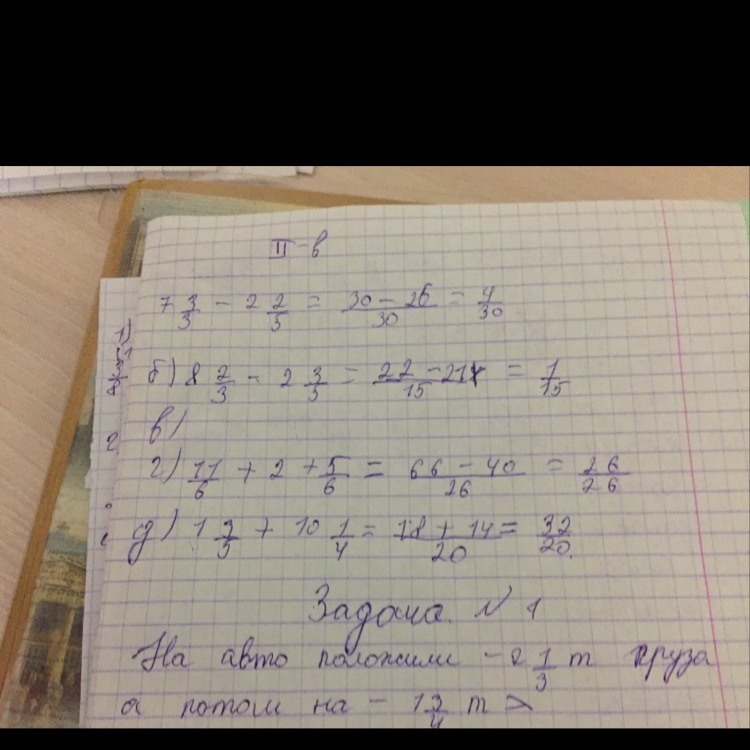 II-в
7 3/3 - 2 2/5 = 30-26/30 = 4/30
б) 8 2/3 - 2 3/5 = 22-21/15 = 1/15
в)
г) 11/6 + 2 + 5/6 = 66-40/26 = 26/26
д) 1 2/5 + 10 1/4 = 18+14/20 = 32/20.
Задача N 1
На авто положили - 2 1/3 т груза
а потом на - 1 3/4 т >